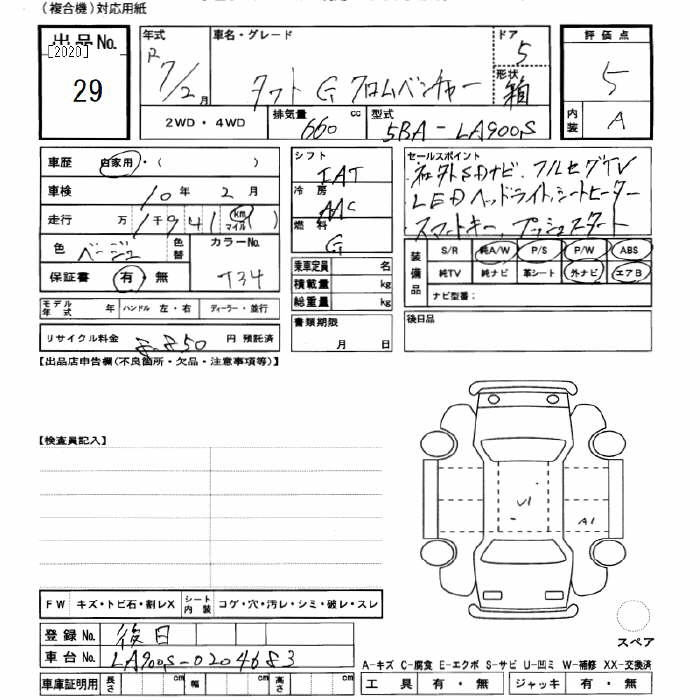 （複合機）対応用紙
出品No. 年式 車名・グレード ドア 評価点
[2020] R 5
29 7/2月 タフト G クロムベンチャー 形状 箱 5
2WD・4WD 排気量 660 cc 型式 5BA-LA900S 内装 A
車歴 自家用・( ) シフト IAT セールスポイント
社外SDナビ、フルセグTV
車検 10年 2月 冷房 AAC LEDヘッドライト、シートヒーター
走行 万 1千941 (km マイル) 燃料 G スマートキー、プッシュスタート
色 ベージュ 色替 カラーNo. T34
保証書 有・無
乗車定員 名
積載量 kg
総重量 kg
装備品 S/R 純A/W P/S P/W ABS
純TV 純ナビ 革シート 外ナビ エアB
ナビ型番：
モデル年式 年 ハンドル 左・右 ディーラー・並行
書類期限 月 日
後日品
リサイクル料金 円 預託済
【出品店申告欄(不良箇所・欠品・注意事項等)】
【検査員記入】
U1
A1
FW キズ・トビ石・割レX シート内装 コゲ・穴・汚レ・シミ・破レ・スレ
登録No. 後日
スペア
車台No. LA900S-0204683
A-キズ C-腐食 E-エクボ S-サビ U-凹ミ W-補修 XX-交換済
車庫証明用 長さ cm 幅 cm 高さ cm 工具 有・無 ジャッキ 有・無